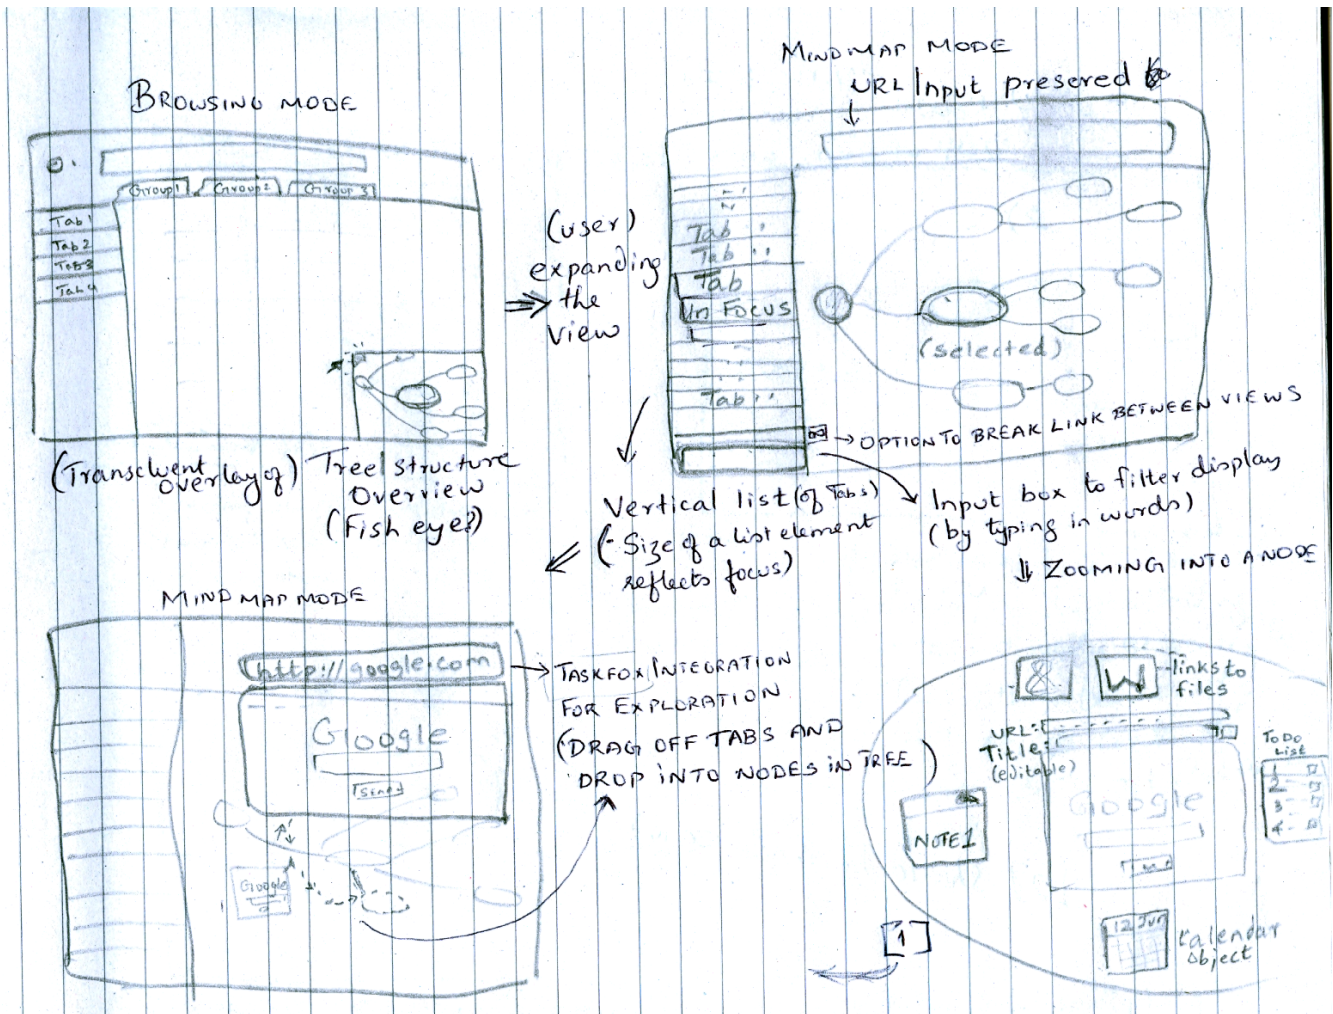 BROWSING MODE
Group1 Group2 Group3
Tab 1
Tab 2
Tab 3
Tab 4
(Translucent Overlay of)
Tree structure
Overview
(Fish eye?)
(user)
expanding
the
view
MINDMAP MODE
URL Input presered
Tab
Tab
Tab
In FOCUS
Tab
(selected)
→ OPTION TO BREAK LINK BETWEEN VIEWS
Vertical list (of Tabs)
(- Size of a list element
reflects focus)
Input box to filter display
(by typing in words)
ZOOMING INTO A NODE
MIND MAP MODE
http://google.com
Gloogle
Gloogle
TASKFOX INTEGRATION
FOR EXPLORATION
(DRAG OFF TABS AND
DROP INTO NODES IN TREE)
&
W
links to
files
URL:
Title:
(editable)
Google
NOTE1
ToDo
List
1
2
3
4
12 Jun
Calendar
object
1